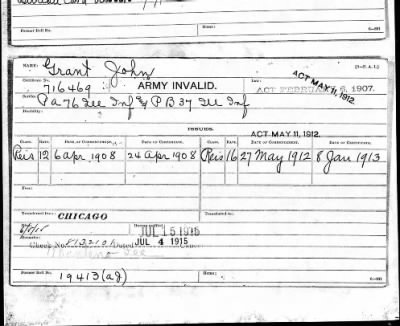 Former Roll No.
Home:
6—881
NAME:
Grant John
(3—2 A I.)
Certificate No.
716469
ARMY INVALID.
Law:
ACT FEBRUARY 6, 1907.
ACT MAY 11, 1912.
Service:
Pa 76 Ill Inf & P B 37 Ill Inf
ISSUES.
ACT MAY 11, 1912.
CLASS. RATE. DATE OF COMMENCEMENT. DATE OF CERTIFICATE. CLASS. RATE. DATE OF COMMENCEMENT. DATE OF CERTIFICATE.
Reis 12 6 apr 1908 24 apr 1908 Reis 16 27 May 1912 8 Jan 1913
From:
Transferred from:
CHICAGO
Transferred to:
JUL 15 1915
Remarks:
Check No. dated JUL 4 1915
Former Roll No.
19413 (aJ)
Home:
6—881